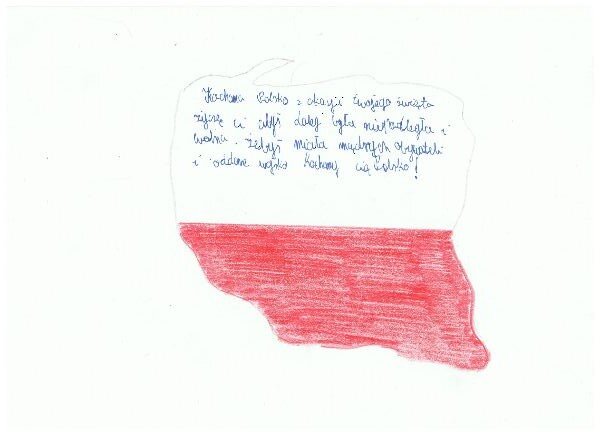 Kochana Polsko z okazji twojego święta
życzę ci abyś dalej była niepodległa i
wolna. Żebyś miała mądrych obywateli
i oddane wojsko Kochamy cię Polsko!